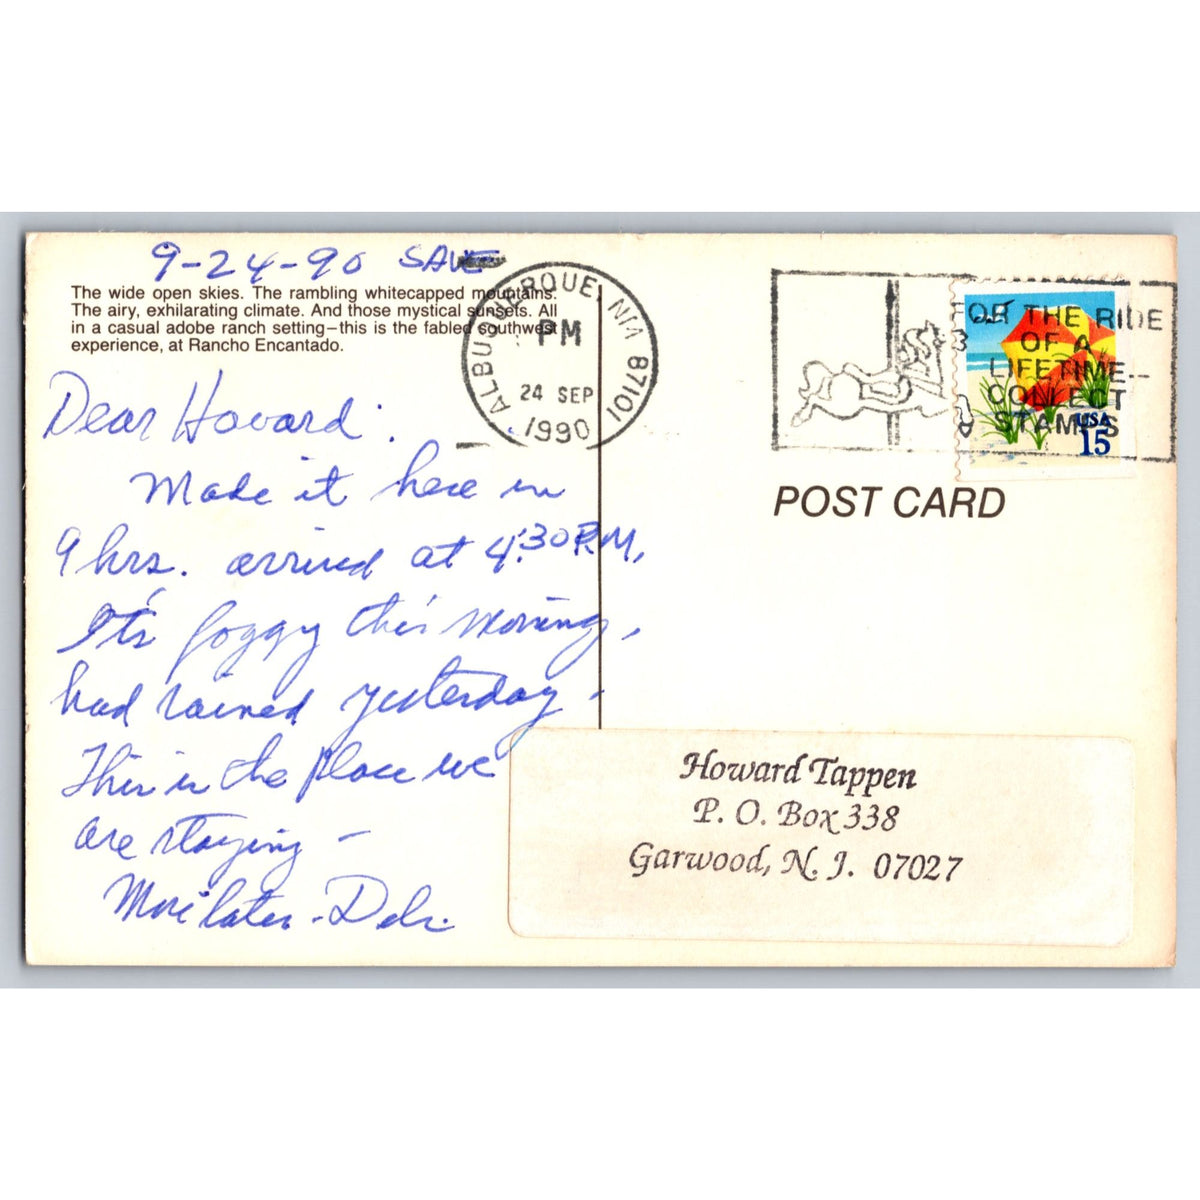 9-24-90 SAVE
The wide open skies. The rambling whitecapped mountains.
The airy, exhilarating climate. And those mystical sunsets. All
in a casual adobe ranch setting—this is the fabled southwest
experience, at Rancho Encantado.
ALBUQUERQUE NM 87101
PM
24 SEP
1990
FOR THE RIDE
OF A
LIFETIME--
COLLECT
STAMPS
USA
15
POST CARD
Dear Howard:
Made it here in
9 hrs. arrived at 4:30 P.M,
It's foggy this morning,
had rained yesterday -
This is the place we
are staying -
More later - Deb.
Howard Tappen
P. O. Box 338
Garwood, N. J. 07027